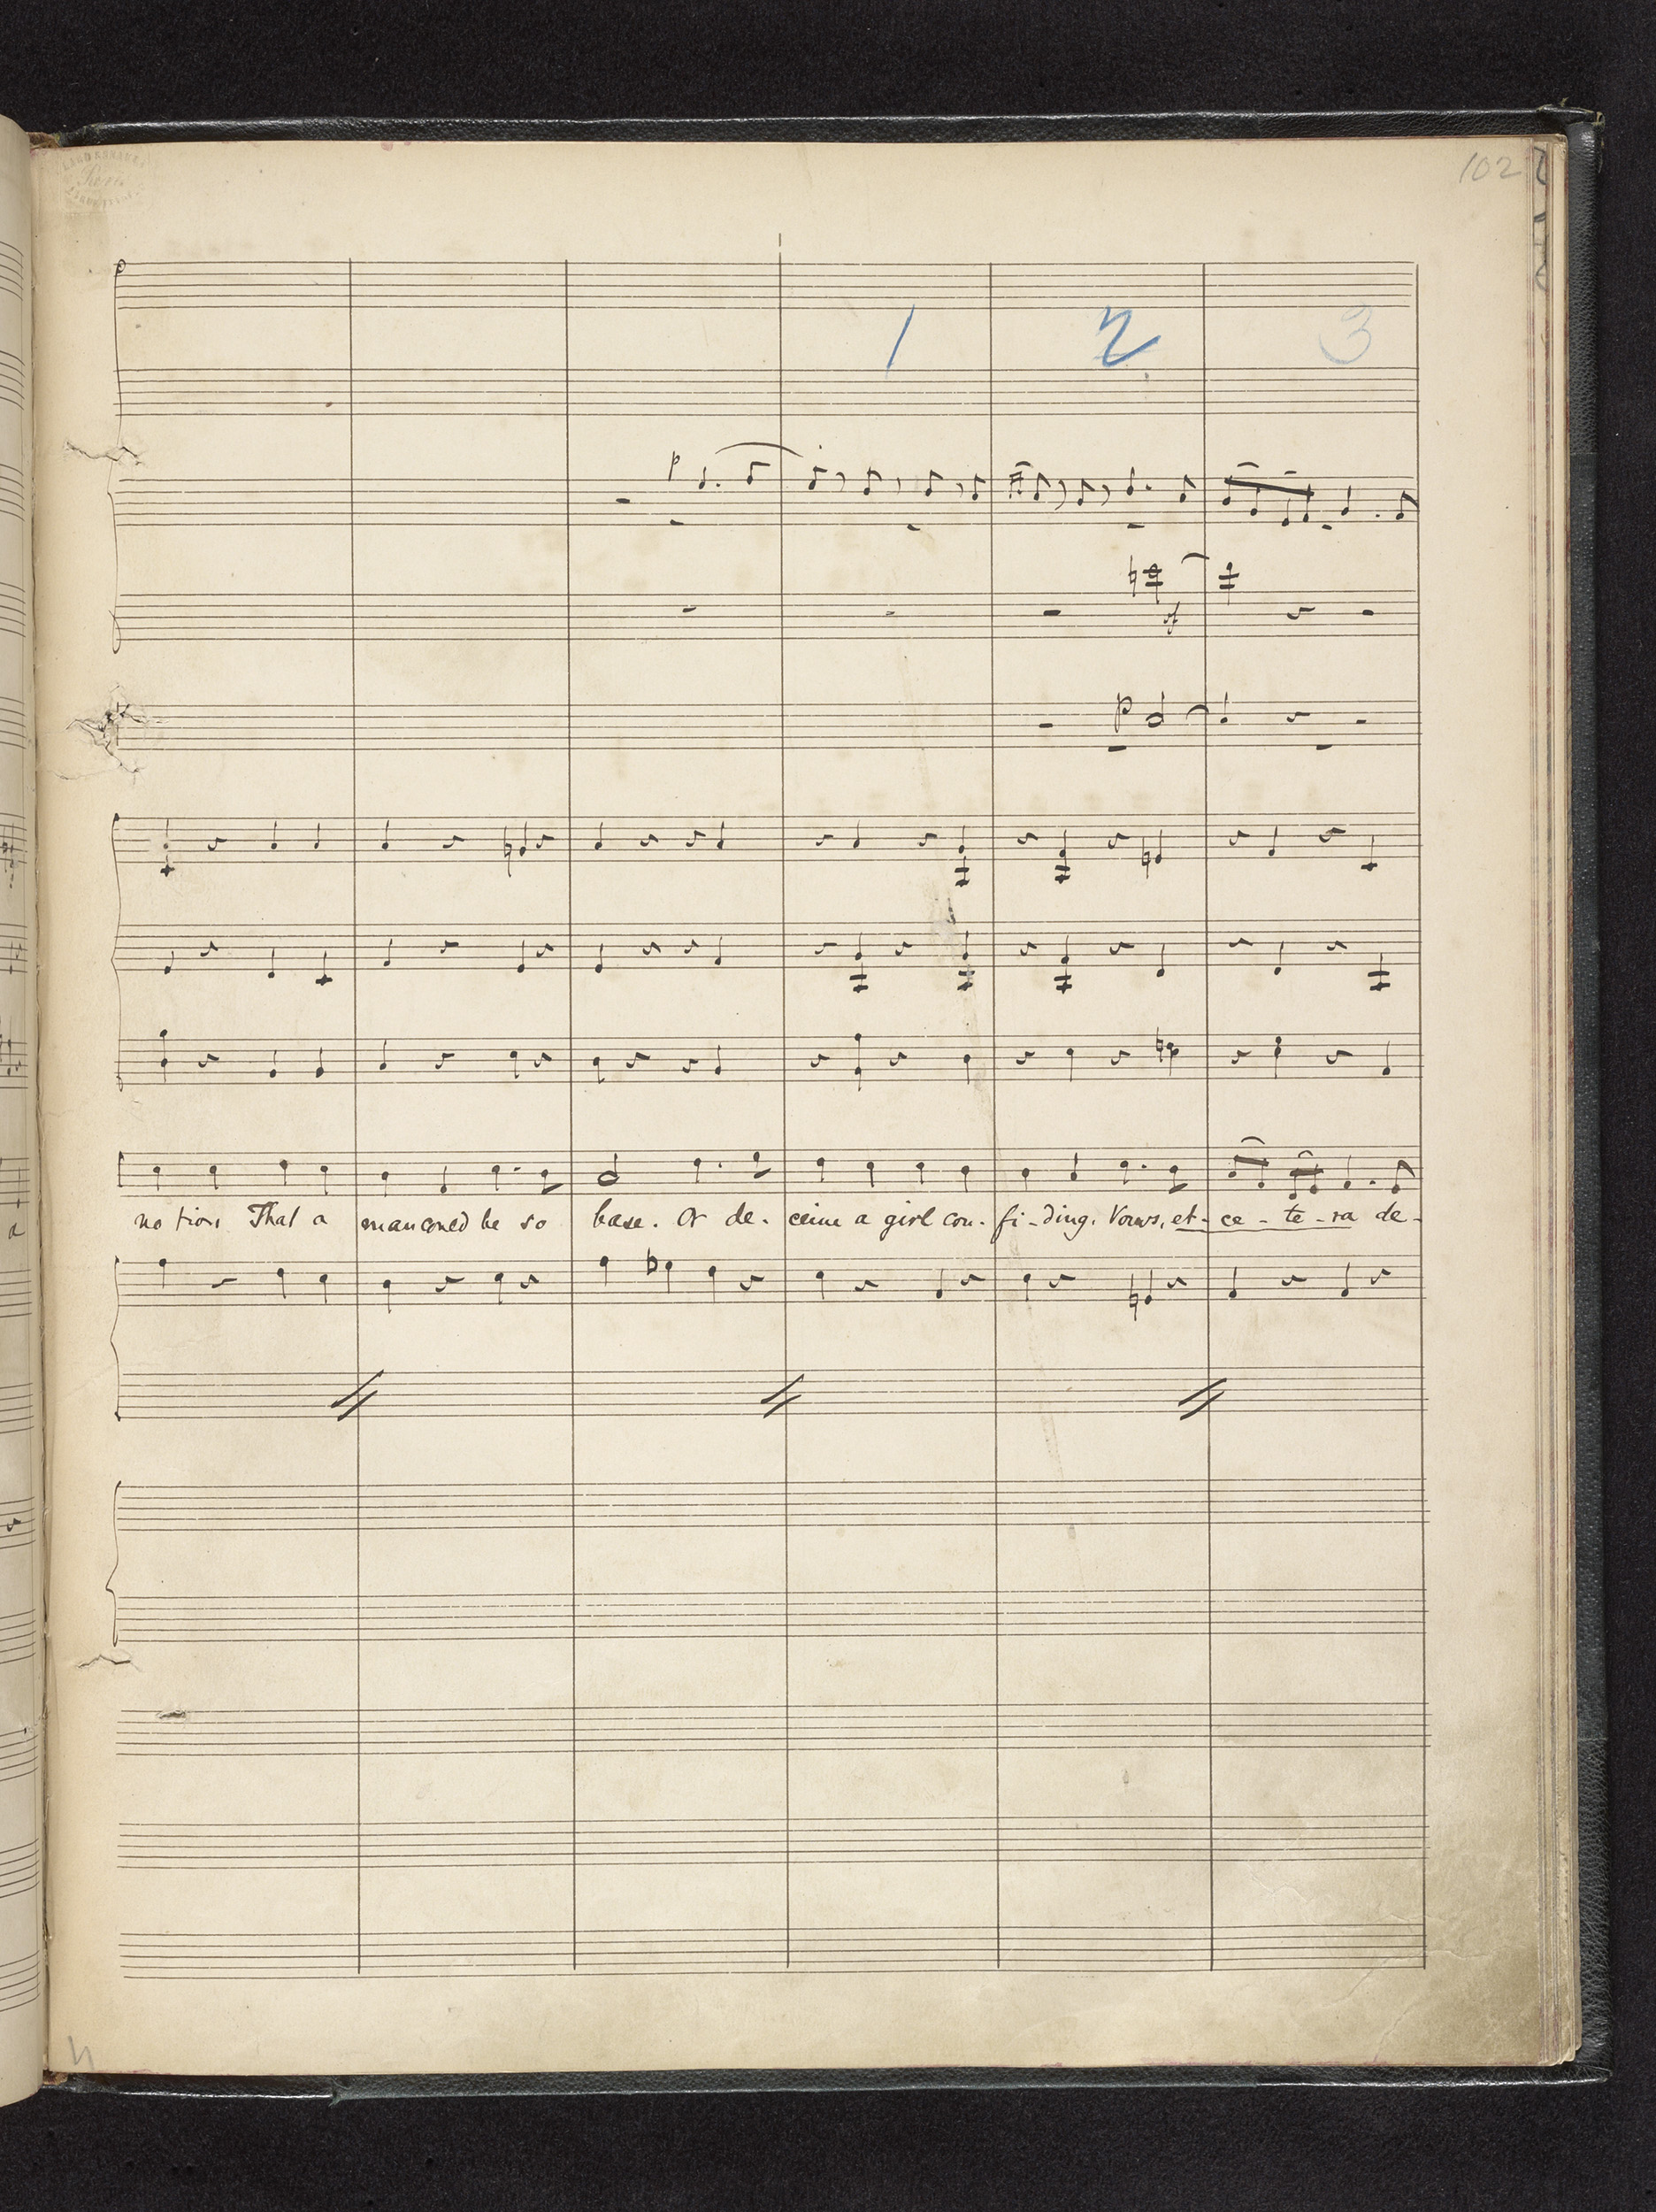 LARD ESNAULT
102
1 2 3
p
sf
p
no tion That a man coued be so base. Or de- ceive a girl con- fi-ding, Vows, et- ce - te - ra de-